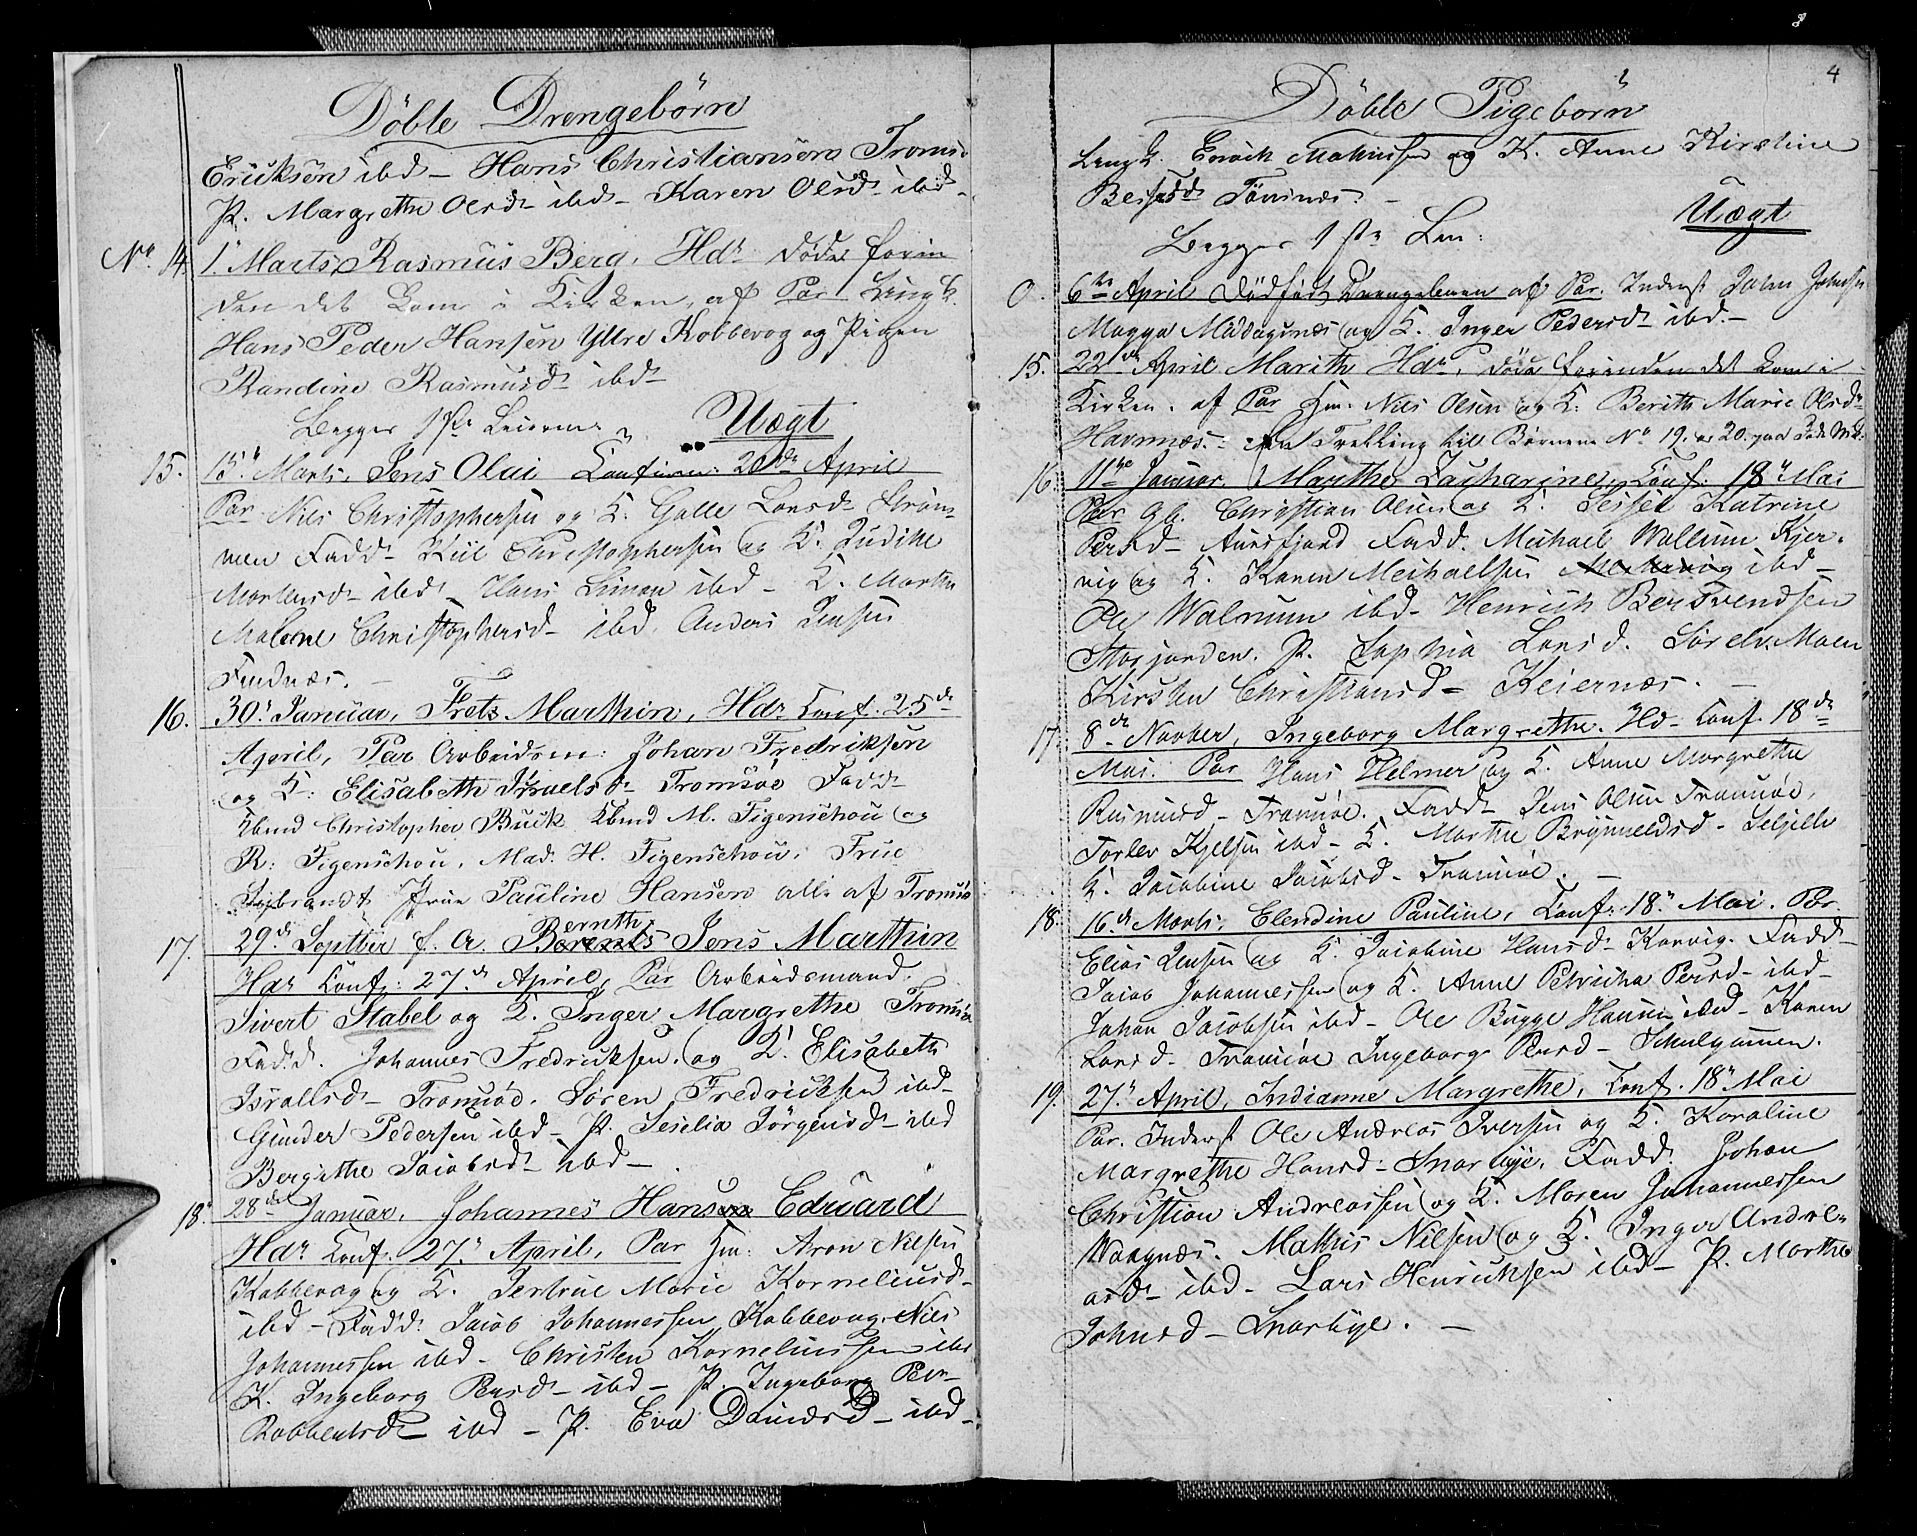 Döbte Drengebörn
Ericksen ibd - Hans Christiansen Troms.
P. Margrethe Olsd ibd - Karen Olsd ibd -
No. 14. 1. Marts, Rasmus Berg, Hdr döde forin
den det kom i Kirken, af Par Ungk.
Hans Peder Hansen Yttre Kobbevog og Pigen
Randine Rasmusd ibd -
Begges 1ste Leierm. Uægt
15. 15. Marts, Jens Olai Confirm: 20de April
Par Nils Christophersen og K. Larsd Ström-
men Fadd - Christophersen og K. Judithe
Mortensd - ibd - Hans Simon ibd - K. Marthe
Malene Christophersd - ibd, Anders Jensen
Findnæs. -
16. 30. Januar, Frets Marthin, Hdr Conf. 25de
April, Par Arbeidsm: Johan Fredriksen
og K: Elisabeth Israelsd - Tromsöe Fadd -
Kbmd Christopher Buck Kbmd M. Figenschou og
R: Figenschou, Mad. H. Figenschou, Frue
Sijbrandt Frue Pauline Hansen alle af Tromsöe
Bernth
17. 29de Septber f. A. Berents Jens Marthin
Hdr Conf: 27de April, Par Arbeidsmand.
Sivert Stabel og K. Inger Margrethe Tromsöe
Fadd. Johannes Fredricksen, og K. Elisabeth
Israelsd - Tromsöe, Sören Fredricksen ibd -
Gunder Pedersen ibd - P. Seselia Jörgensd - ibd
Bergithe Jacobsd - ibd -
18. 28de Januar, Johannes Hansen Eduard
Hdr Conf. 27. April, Par Gm: Aron Nilsen
Kobbevog og K. Jertrue Marie Korneliusd -
ibd - Fadd: Jacob Johannessen Kobbevog, Nils
Johannessen ibd - Christen Korneliussen ibd
K. Ingeborg Persd - ibd - P. Ingeborg Per-
ibd - P. Eva Danielsd - ibd -
4
Döbte Pigebörn
Ungk. Enoch Mathissen og K. Anne Kirstine
Tönsnes. -
Uægt
Begges 1ste Lm:
0. 6te April Dödfödt Drengebarn af Par. Inderst Johan Johnsen
og K. Inger Pedersd - ibd. -
15. 22de April Marith Hdr, döde forinden det kom i
Kirken. af Par Gm. Nils Olsen og K: Berith Marie Olsd -
Havnnæs: En Trelling till Börnene No 19. og 20.
16. 11te Januar. Marthe Zacharine, Conf: 18. Mai
Par Gb. Christian Olsen og K. Sessel Katrine
Persd - Aursfjord Fadd. Michael Walnum Kjer-
vig og K. Karen Meihaelsen ibd -
Ole Walnum ibd - Henrich Bersvendsen
Storjorden. P. Sophia Larsd. Sörelv. Maln
Kirsten Christiansd - Keiernæs. -
17. 8de Novber, Ingeborg Margrethe. Hd - Conf. 18de
Mai. Par Hans Helmer og K. Anne Margrethe
Rasmusd - Tromsöe. Fadd - Jens Olsen Tromsöe,
Torlev Kjelsen ibd - K. Marthe Brynneldsd - Seljelv
K. Jacobine Jacobsd - Tromsöe. -
18. 16de Marts, Elendine Pauline, Conf: 18. Mai. Par
Elias Jensen og K. Jacobine Hansd - Korvig. Fadd -
Jacob Johannessen og K. Anne Petricka Persd - ibd -
Johan Jacobsen ibd - Ole Bugge Hansen ibd - Karen
Larsd - Tromsöe Ingeborg Persd - Schulgammen.
19. 27. April, Indianne Margrethe, Conf. 18. Mai
Par. Inderst Ole Andreas Iversen og K. Karaline
Margrethe Hansd - Snarbye. Fadd. Johan
Christian Andreassen og K. Maren Johannessen
Vaagnæs. Mathis Nilsen og K. Inger Andre-
asd - ibd - Lars Henricksen ibd - P. Marthe
Johnsd - Snarbye. -